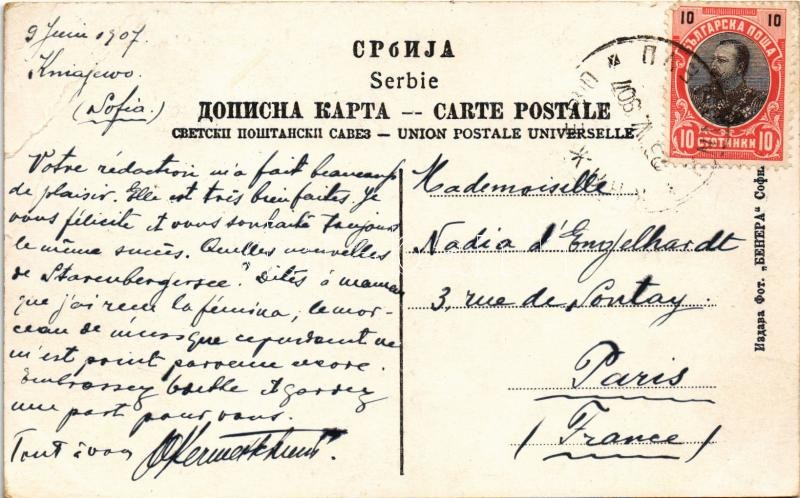 9 Juin 1907.
Kniajewo
(Sofia)
СРБИЈА
Serbie
ДОПИСНА КАРТА -- CARTE POSTALE
СВЕТСКИ ПОШТАНСКИ САВЕЗ -- UNION POSTALE UNIVERSELLE
10 10
БЪЛГАРСКА ПОЩА
10 СТОТИНКИ 10
Votre rédaction m'a fait beaucoup
de plaisir. Elle est très bien faites. Je
vous félicite et vous souhaite toujours
le même succès. Quelles nouvelles
de Starenbergersee? Dites à maman
que j'ai reçu la fémina, le mor-
ceau de musique cependant ne
m'est point parvenu encore.
Embrassez Bable et gardez
une part pour vous.
Tout à vous
Mademoiselle
Nadia d'Engelhardt
3, rue de Pontay.
Paris
(France)
Издава Фот. „ВЕНЕРА" Софи